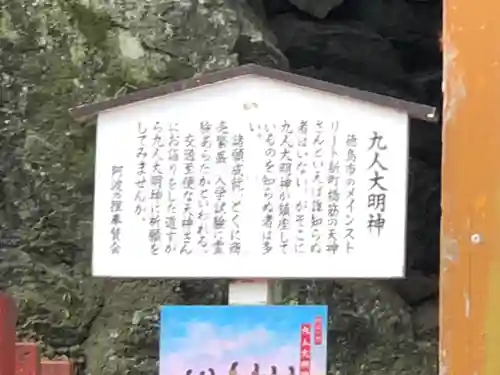 九人大明神
徳島市のメインスト
リート新町橋筋の天神
さんといえば誰知らぬ
者はいない。がそこに
九人大明神が鎮座して
いるのを知らぬ者は多
い。
諸願成就、とくに商
売繁昌、入学試験に霊
験あらたかといわれる。
交通至便な天神さん
にお詣りをした道すが
ら九人大明神に祈願を
してみませんか。
阿波の狸奉賛会
九人大明